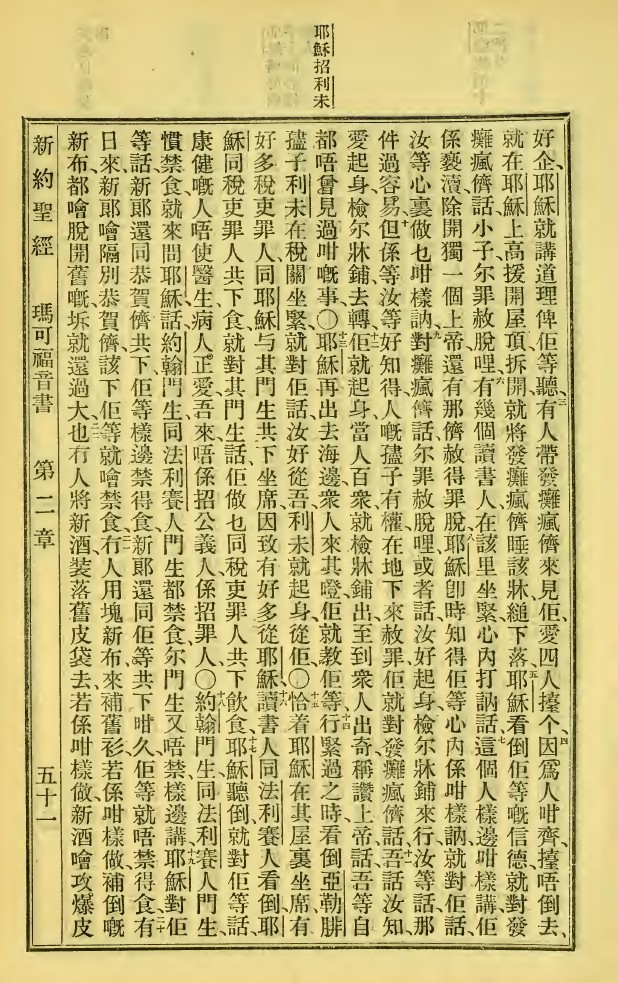 耶穌招利未
好企、耶穌就講道理俾佢等聽、三有人帶發癱瘋儕來見佢、愛四人擡个、四因爲人咁齊、擡唔倒去、
就在耶穌上高援開屋頂、拆開、就將發癱瘋儕睡該牀縋下落、五耶穌看倒佢等嘅信德、就對發
癱瘋儕話、小子、尔罪赦脫哩、六有幾個讀書人、在該里坐緊、心內打訥話、七這個人樣邊咁樣講、佢
係褻瀆、除開獨一個上帝、還有那儕赦得罪脫、八耶穌卽時知得佢等心內係咁樣訥、就對佢話、
汝等心裏做乜咁樣訥、九對癱瘋儕話、尔罪赦脫哩、或者話、汝好起身、檢尔牀鋪來行、汝等話那
件過容易、十但係等汝等好知得、人嘅孻子有權在地下來赦罪、佢就對發癱瘋儕話、十一吾話汝知、
愛起身、檢尔牀鋪去轉、十二佢就起身、當人百衆、就檢牀鋪出、至到衆人出奇、稱讚上帝話、吾等自
都唔曾見過咁嘅事、〇十三耶穌再出去海邊、衆人來其噔、佢就教佢等、十四行緊過之時、看倒亞勒腓
孻子利未、在稅關坐緊、就對佢話、汝好從吾、利未就起身從佢、〇十五恰着耶穌在其屋裏坐席、有
好多稅吏罪人、同耶穌与其門生共下坐席、因致有好多從耶穌、十六讀書人同法利賽人、看倒耶
穌同稅吏罪人共下食、就對其門生話、佢做乜同稅吏罪人共下飲食、十七耶穌聽倒、就對佢等話、
康健嘅人唔使醫生、病人正愛、吾來唔係招公義人、係招罪人、〇十八約翰門生、同法利賽人門生、
慣禁食、就來問耶穌話、約翰門生、同法利賽人門生都禁食、尔門生又唔禁、樣邊講、十九耶穌對佢
等話、新郎還同恭賀儕共下、佢等樣邊禁得食、新郎還同佢等共下咁久、佢等就唔禁得食、二十有
日來、新郎噲隔別恭賀儕、該下佢等就噲禁食、二一冇人用塊新布來補舊衫、若係咁樣做、補倒嘅
新布、都噲脫開舊嘅、坼就還過大、二二也冇人將新酒裝落舊皮袋去、若係咁樣做、新酒噲攻爆皮
新約聖經 瑪可福音書 第二章 五十一